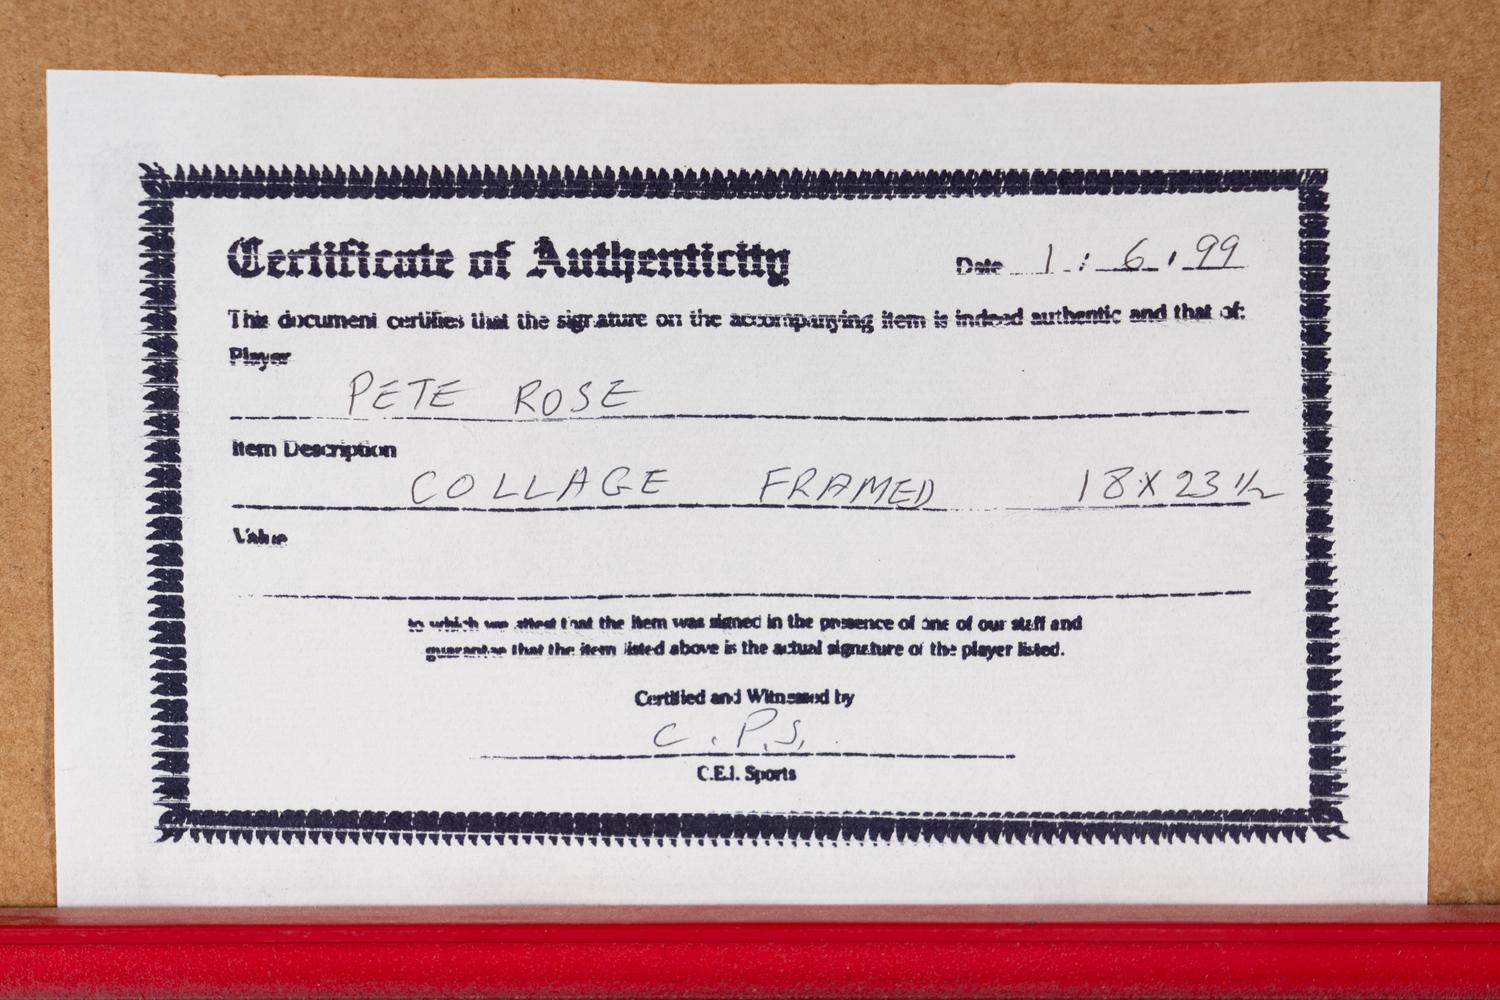 Certificate of Authenticity Date 1 : 6 , 99
This document certifies that the signature on the accompanying item is indeed authentic and that of:
Player
PETE ROSE
Item Description
COLLAGE FRAMED 18 X 23 1/2
Value
to which we attest that the item was signed in the presence of one of our staff and
guarantee that the item listed above is the actual signature of the player listed.
Certified and Witnessed by
C. P.S.
C.E.I. Sports